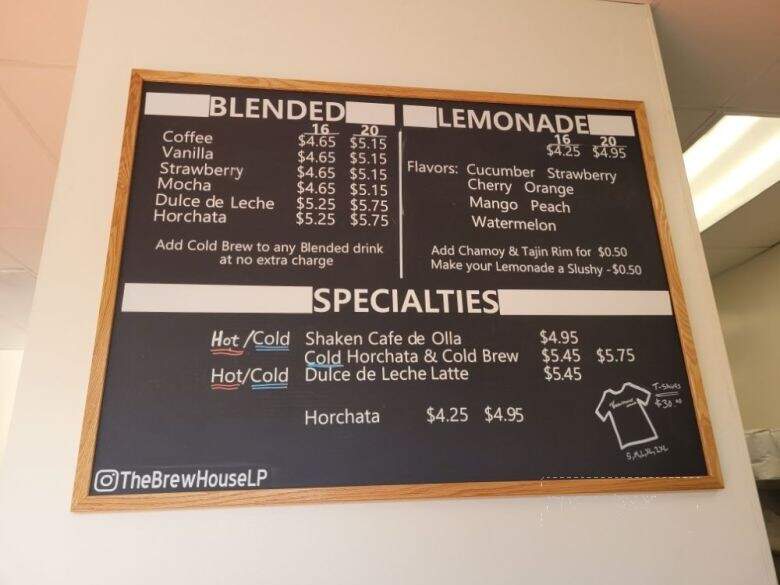 BLENDED
16 20
Coffee $4.65 $5.15
Vanilla $4.65 $5.15
Strawberry $4.65 $5.15
Mocha $4.65 $5.15
Dulce de Leche $5.25 $5.75
Horchata $5.25 $5.75
Add Cold Brew to any Blended drink
at no extra charge
LEMONADE
16 20
$4.25 $4.95
Flavors: Cucumber Strawberry
Cherry Orange
Mango Peach
Watermelon
Add Chamoy & Tajin Rim for $0.50
Make your Lemonade a Slushy -$0.50
SPECIALTIES
Hot/Cold Shaken Cafe de Olla $4.95
Cold Horchata & Cold Brew $5.45 $5.75
Hot/Cold Dulce de Leche Latte $5.45
Horchata $4.25 $4.95
T-Shirts
$30.00
S,M,L,XL,2XL
TheBrewHouseLP